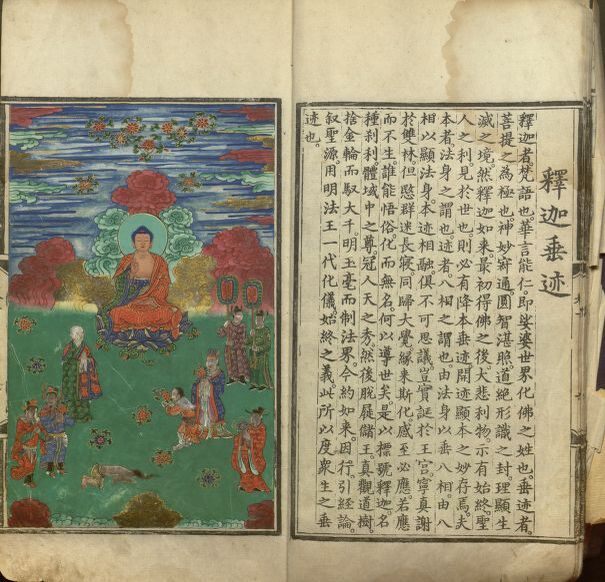 釋迦垂迹
釋迦者。梵語也。華言能仁。即娑婆世界化佛之姓也。垂迹者。
菩提之為極也。神妙寂通。圓智湛照。道絶形識之封。理顯生
滅之境。然釋迦如來。最初得佛之後。大悲利物。示有始終。聖
人之利見於世也。則必有降本垂迹。開迹顯本之妙存焉。夫
本者。法身之謂也。迹者。八相之謂也。由法身以垂八相。由八
相以顯法身。本迹相融。俱不可思議。豈實誕於王宮。寧真謝
於雙林。但愍群迷長寢。同歸大覺。緣来斯化。感至必應。若應
而不生。誰能悟俗。化而無名。何以導世矣。是以標號釋迦。名
種剎利。體域中之尊。冠人天之秀。然後脫屣儲王。真觀道樹。
捨金輪而馭大千。明玉毫而制法界。今約如來因行。引經論。
叙聖源。用明法王一代化儀。始終之義。此所以度衆生之垂
迹也。